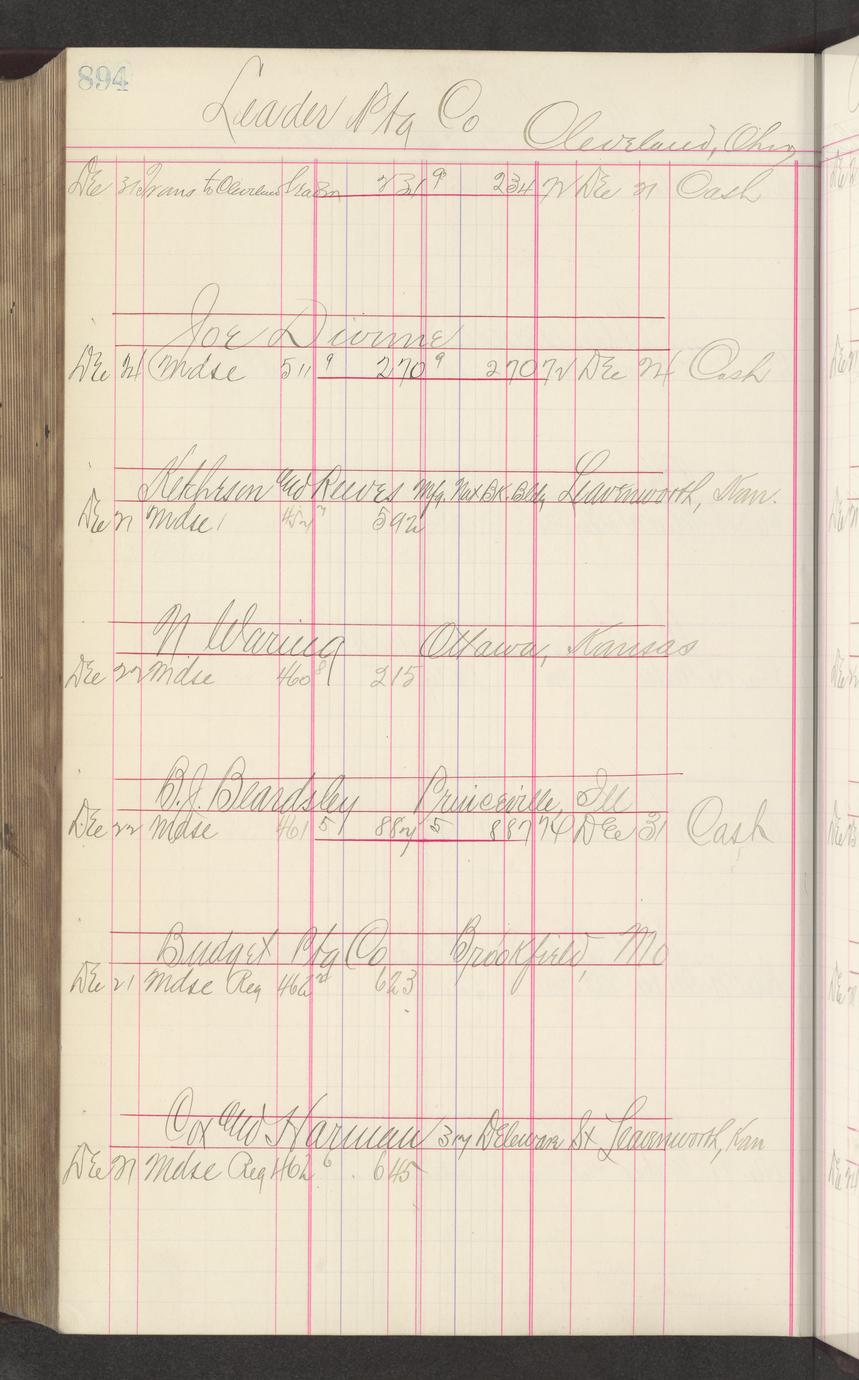 894
Leader Ptg Co Cleveland, Ohio
Dec 31 Trans to Cleveland 9 234 72 Dec 21 Cash
Joe Divine
Dec 24 Mdse 511 9 270 9 270 72 Dec 24 Cash
and Reeves Bk. Bldg Leavenworth, Kan.
Dec 21 Mdse 592
N Waring Ottawa, Kansas
Dec 22 Mdse 460 8 215
B.J. Beardsley Princeville, Ill
Dec 22 Mdse 461 5 887 5 887 74 Dec 31 Cash
Budget Ptg Co Brookfield, Mo
Dec 21 Mdse Reg 462 623
Cox and Harman Deleware St Leavenworth, Kan
Dec 21 Mdse Reg 462 6 645